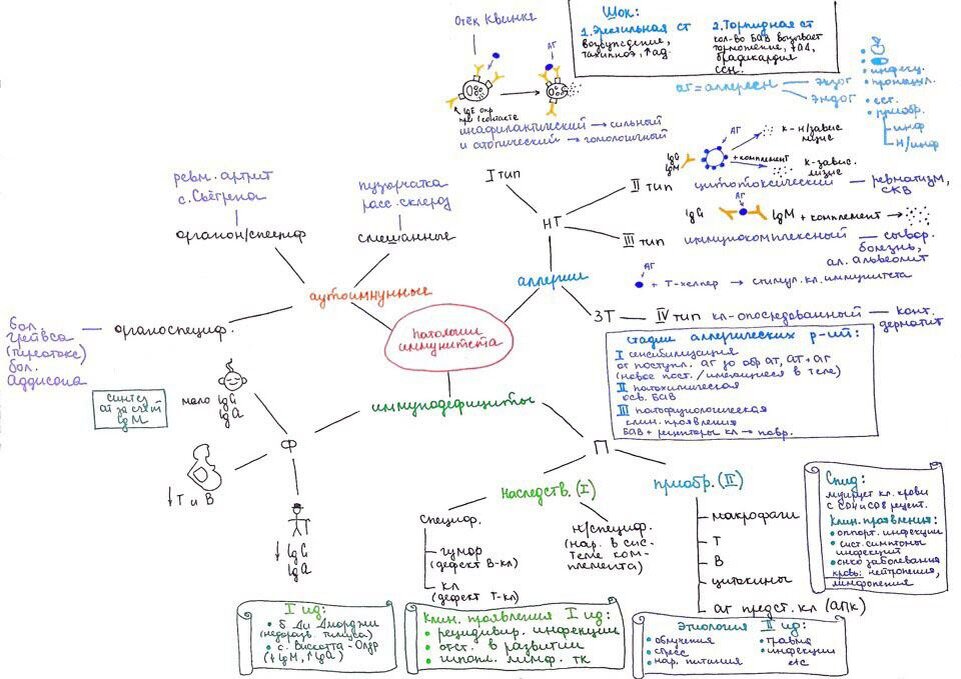 Отёк Квинке
АГ
IgE опр
при 1 контакте
анафилактический → сильный
и атопический → гомологичный
Шок:
1. Эректильная ст
возбуждение,
тахипноэ, ↑ад
2. Торпидная ст
кол-во БАВ вызывает
торможение, ↑АД,
брадикардия
ССН.
аг = аллерген
экзог
эндог
• инфекц.
• промышл.
• ест.
• приобр.
инф
н/инф
I тип
НТ
II тип
IgG
IgM
АГ
+ комплемент
к-н/завис
лизис
к-завис.
лизис
цитотоксический — ревматизм,
СКВ
АГ
IgG
IgM + комплемент →
III тип
иммунокомплексный — сывор.
болезнь,
ал. альвеолит
аллергии
АГ
+ Т-хелпер → стимул. кл. иммунитета
ЗТ — IV тип
кл-опосредованный — конт.
дерматит
ревм. артрит
с. Сьёгрена
органон/специф
пузырчатка
расс. склероз
смешанные
аутоиммунные
бол.
Грейвса
(тиреотокс)
бол.
Аддисона
органоспециф.
патологии
иммунитета
Стадии аллергических р-ий:
I сенсибилизация
от поступл. АГ до обр АТ, АТ + АГ
(новое пост. / имеющиеся в теле)
II патохимическая
осв. БАВ
III патофизиологическая
клин. проявления
БАВ + рецепторы кл → повр.
иммунодефициты
синтез
ат за счёт
IgM
мало IgG
IgA
Ф
↓ Т и В
↓ IgG
IgA
П
наследств. (I)
специф.
гумор
(дефект В-кл)
кл
(дефект Т-кл)
н/специф.
(нар. в сис-
теме ком-
племента)
приобр. (II)
макрофаги
Т
В
цитокины
аг предст. кл (АПК)
СПИД:
с CD4 и CD8 рецепт.
Клин. проявления:
• оппорт. инфекции
• сист. симптомы
инфекций
• онко заболевания
кровь: нейтропения,
лимфопения
I ид:
• б. Ди Джорджи
(недоразв. тимуса)
• с. Вискотта-Олдр
(↓IgM, ↑IgA)
Клин. проявления I ид:
• рецидивир. инфекции
• отст. в развитии
• гипопл. лимф. тк
Этиология II ид:
• облучения
• стресс
• нар. питания
• травма
• инфекции